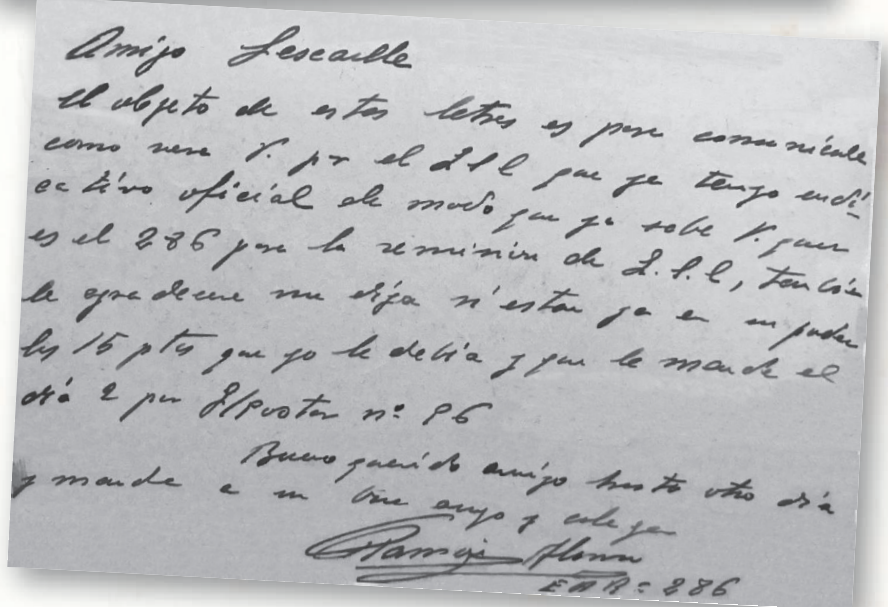 Amigo Lescaille
El objeto de estas letras es para comunicarle
como vera V. por el QSL que ya tengo indi-
cativo oficial de modo que ya sabe V. que
es el 286 para la remisión de Q.S.L, tambien
le agradecere me diga si estan ya en su poder
las 15 ptas que yo le debía y que le mande el
día 2 por G/postal nº 96
Bueno querido amigo hasta otro día
y mande a su buen amigo y colega
Ramón
EAR=286